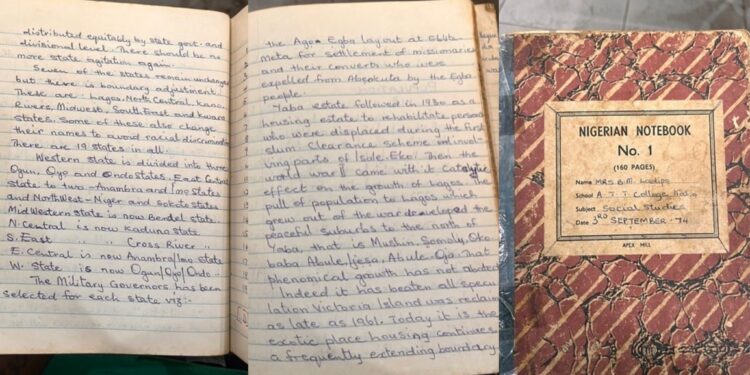 distributed equitably by state govt. and
divisional level. There should be no
more state agitation again.
Seven of the states remain unchanged
but there is boundary adjustment.
These are: Lagos, North Central, Kano,
Rivers, Midwest, South East and Kwara
states. Some of these also change
their names to avoid racial discrimination
There are 19 states in all.
Western state is divided into three
Ogun, Oyo and Ondo states. East Central
state to two - Anambra and Imo states
and North West - Niger and Sokoto states
Mid Western state is now Bendel state.
N. Central is now Kaduna state
S. East " " Cross River "
E. Central is now Anambra/Imo state
W. State is now Ogun/Oyo/Ondo "
The Military Governors has been
selected for each state viz:-
the Ago Egba layout at Ebute
meta for settlement of missionaries
and their converts who were
expelled from Abeokuta by the Egba
people.
Yaba estate followed in 1930 as a
housing estate to rehabilitate persons
who were displaced during the first
slum clearance scheme involv-
ing parts of Isale-Eko. Then the
world war II came with it
effect on the growth of Lagos. The
pull of population to Lagos which
grew out of the war developed the
peaceful suburbs to the north of
Yaba, that is Mushin, Somolu, Oko-
baba Abule-Ijesa, Abule-Oja. That
phenomical growth has not abated
Indeed it has beaten all specu
lation Victoria Island was reclaim
as late as 1961. Today it is the
exotic place housing continues
a frequently extending boundary
NIGERIAN NOTEBOOK
No. 1
(160 PAGES)
Name MRS B.M. Ladipo
School A.T.T. College
Subject Social Studies
Date 3RD SEPTEMBER - 74
APEX MILL